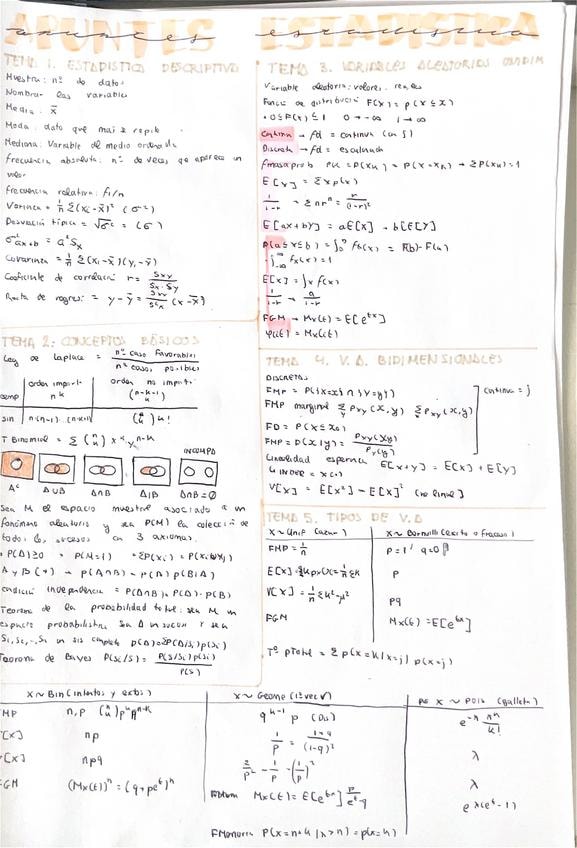 APUNTES ESTADISTICA
apuntes estadistica
TEMA 1. ESTADISTICA DESCRIPTIVA
Muestra: nº de datos
Nombrar las variables
Media: x̄
Moda: dato que mas se repite
Mediana: Variable del medio ordenada
frecuencia absoluta: nº de veces que aparece un
valor
frecuencia relativa: fi/n
Varianza = 1/n Σ(xi-x̄)² (σ²)
Desviación típica = √σ² = (σ)
Covarianza = 1/n Σ(xi-x̄)(yi-ȳ)
Coeficiente de correlación r = Sxy / Sx·Sy
Recta de regresi = y-ȳ = Sxy/S²x (x-x̄)
TEMA 2: CONCEPTOS BÁSICOS
Ley de Laplace = nº caso favorables / nº casos posibles
orden import. orden no import.
n^k
sin n(n-1)...(n-k+1)
T Binomial = Σ (n k) x^k y^n-k
INCOMPA
A^c A∪B A∩B A|B A∩B=∅
Sea M el espacio muestral asociado a un
fenómeno aleatorio y sea P(M) la colección de
todos los sucesos con 3 axiomas.
· P(A)≥0 · P(M)=1
condición independencia = P(A∩B)=P(A)·P(B)
Teorema de la probabilidad total: sea M un
espacio probabilistico Sea A un suceso y sea
S1, S2, ..., Sn un sis completo P(A)=ΣP(A|Si)p(Si)
Teorema de Bayes P(Si/S) = P(S/Si)P(Si) / P(S)
TEMA 3. VARIABLES ALEATORIAS UNIDIM
Variable aleatoria: valores reales
Funció de distribució F(x) = p(X≤x)
· 0≤F(x)≤1 0→-∞ 1→∞
Continua → fd = continua (con ∫)
Discreta → fd = escalonada
E[x] = Σxp(x)
1/1-r → Σnrⁿ = r/(1-r)²
E[ax+by] = aE[x] + bE[y]
p(a≤x≤b) = ∫ fx(x) = F(b)-F(a)
· ∫ fx(x) = 1
E[x] = ∫x f(x)
FGM → Mx(t) = E[e^tx]
φ(t) = Mx(it)
TEMA 4. V.A. BIDIMENSIONALES
DISCRETAS
FMP = P{x=x∩y=y}
continua = ∫
FMP marginal Σy Pxy(x,y) Σx Pxy(x,y)
FD = P(X≤x)
FMP = P(x|y) = Pxy(x,y) / Py(y)
Linealidad esperanza E[x+y] = E[x] + E[y]
V[x] = E[x²] - E[x]² (no lineal)
TEMA 5. TIPOS DE V.A
X~Unif (azar) X~Bernoulli (exito o fracaso)
FMP = 1/n p=1 q=0
E[x] p
V[x] = 1/n Σk²-μ² pq
FGM Mx(t) = E[e^tx]
Tº pTotal = Σ p(x=k|x=j) p(x=j)
X~Bin (intentos y exitos) X~Geome (1ª vez) X~Pois (galleta)
FMP n,p (n k) p^k q^n-k q^k-1 p e^-λ λ^k/k!
E[x] np 1/p λ
V[x] npq 2/p² - 1/p - (1/p)² λ
FGM (Mx(t))ⁿ = (q+pe^t)ⁿ Mx(t) = E[e^tx] e^λ(e^t-1)
FMemoria P(x=n+k|x>n) = p(x=k)